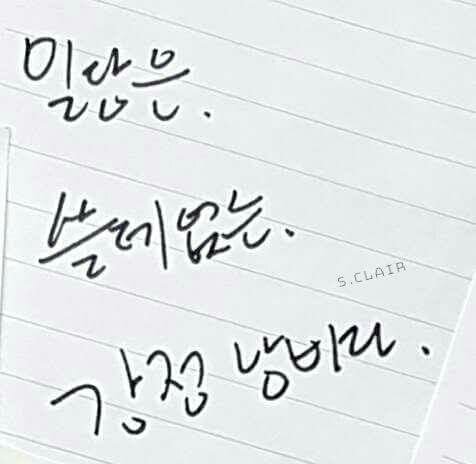 밀당은.
쓸데없는.
S.CLAIR
감정 낭비다.